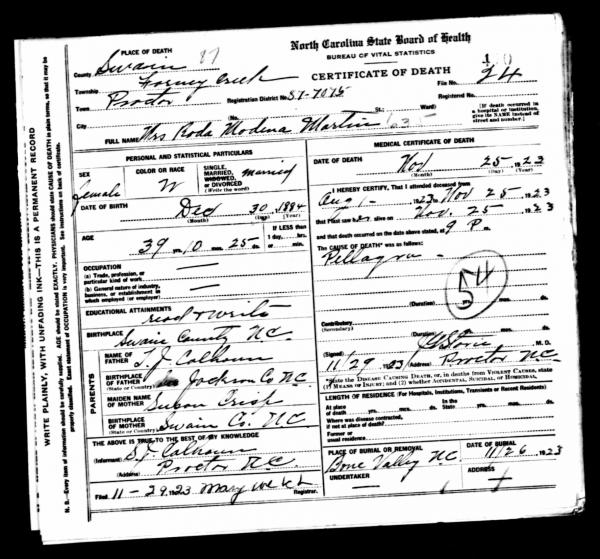 North Carolina State Board of Health
BUREAU OF VITAL STATISTICS
CERTIFICATE OF DEATH
PLACE OF DEATH
County Swain 87
Township Forney Creek
Town Proctor
Registration District No. 87-7075
File No. 24
Registered No.
City (No. St.; Ward)
[If death occurred in a hospital or institution, give its NAME instead of street and number.]
FULL NAME Mrs Roda Modena Martin
PERSONAL AND STATISTICAL PARTICULARS
SEX female
COLOR OR RACE W
SINGLE, MARRIED, WIDOWED, or DIVORCED (Write the word) married
DATE OF BIRTH Dec 30, 1884
(Month) (Day) (Year)
AGE 39 yrs. 10 mos. 25 ds.
If LESS than 1 day, hrs. or min.
OCCUPATION
(a) Trade, profession, or particular kind of work
(b) General nature of industry, business, or establishment in which employed (or employer)
EDUCATIONAL ATTAINMENTS read & write
BIRTHPLACE Swain County NC.
PARENTS
NAME OF FATHER T. J. Calhoun
BIRTHPLACE OF FATHER (State or Country) Jackson Co NC.
MAIDEN NAME OF MOTHER Susan Crisp
BIRTHPLACE OF MOTHER (State or Country) Swain Co. NC
THE ABOVE IS TRUE TO THE BEST OF MY KNOWLEDGE
(Informant) S. J. Calhoun
(Address) Proctor N.C.
Filed 11-29, 1923 Mary Welch Registrar.
MEDICAL CERTIFICATE OF DEATH
DATE OF DEATH Nov 25, 1923
(Month) (Day) (Year)
I HEREBY CERTIFY, That I attended deceased from
Aug 1 - 1923, Nov 25, 1923
that I last saw her alive on Nov. 25, 1923
and that death occurred on the date above stated, at 9 P m.
The CAUSE OF DEATH* was as follows:
Pellagra
54
(Duration) yrs. mos. ds.
Contributory
(Secondary)
(Duration) yrs. mos. ds.
(Signed) M. D.
11/29 1923 (Address) Proctor NC
*State the DISEASE CAUSING DEATH, or, in deaths from VIOLENT CAUSES, state (1) MEANS OF INJURY; and (2) whether ACCIDENTAL, SUICIDAL, or HOMICIDAL.
LENGTH OF RESIDENCE (For Hospitals, Institutions, Transients or Recent Residents)
At place of death yrs. mos. ds. In the State yrs. mos. ds.
Where was disease contracted, if not at place of death?
Former or usual residence
PLACE OF BURIAL OR REMOVAL Bone Valley N.C.
DATE OF BURIAL 11/26 1923
UNDERTAKER
ADDRESS
WRITE PLAINLY, WITH UNFADING INK—THIS IS A PERMANENT RECORD
N. B.—Every item of information should be carefully supplied. AGE should be stated EXACTLY. PHYSICIANS should state CAUSE OF DEATH in plain terms, so that it may be properly classified. Exact statement of OCCUPATION is very important. See instructions on back of certificate.